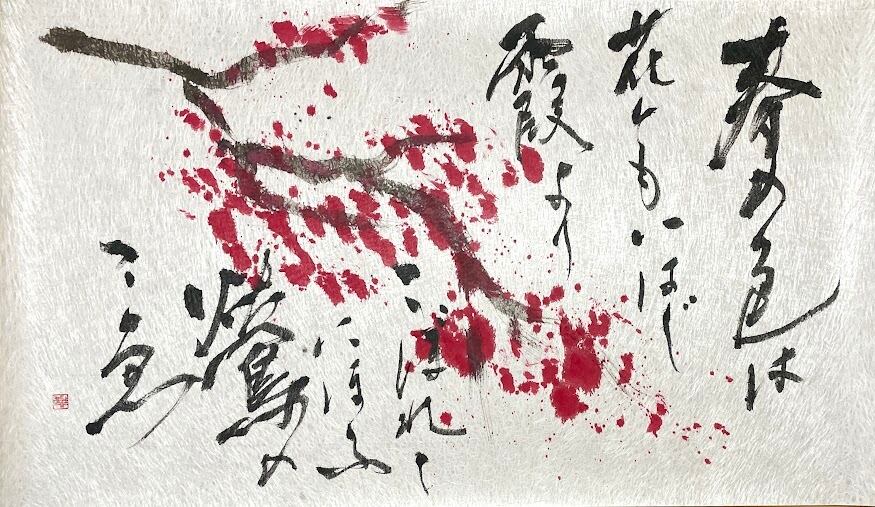 春の色は
花ともいはじ
霞より
こぼれて
にほふ
鶯の
こゑ